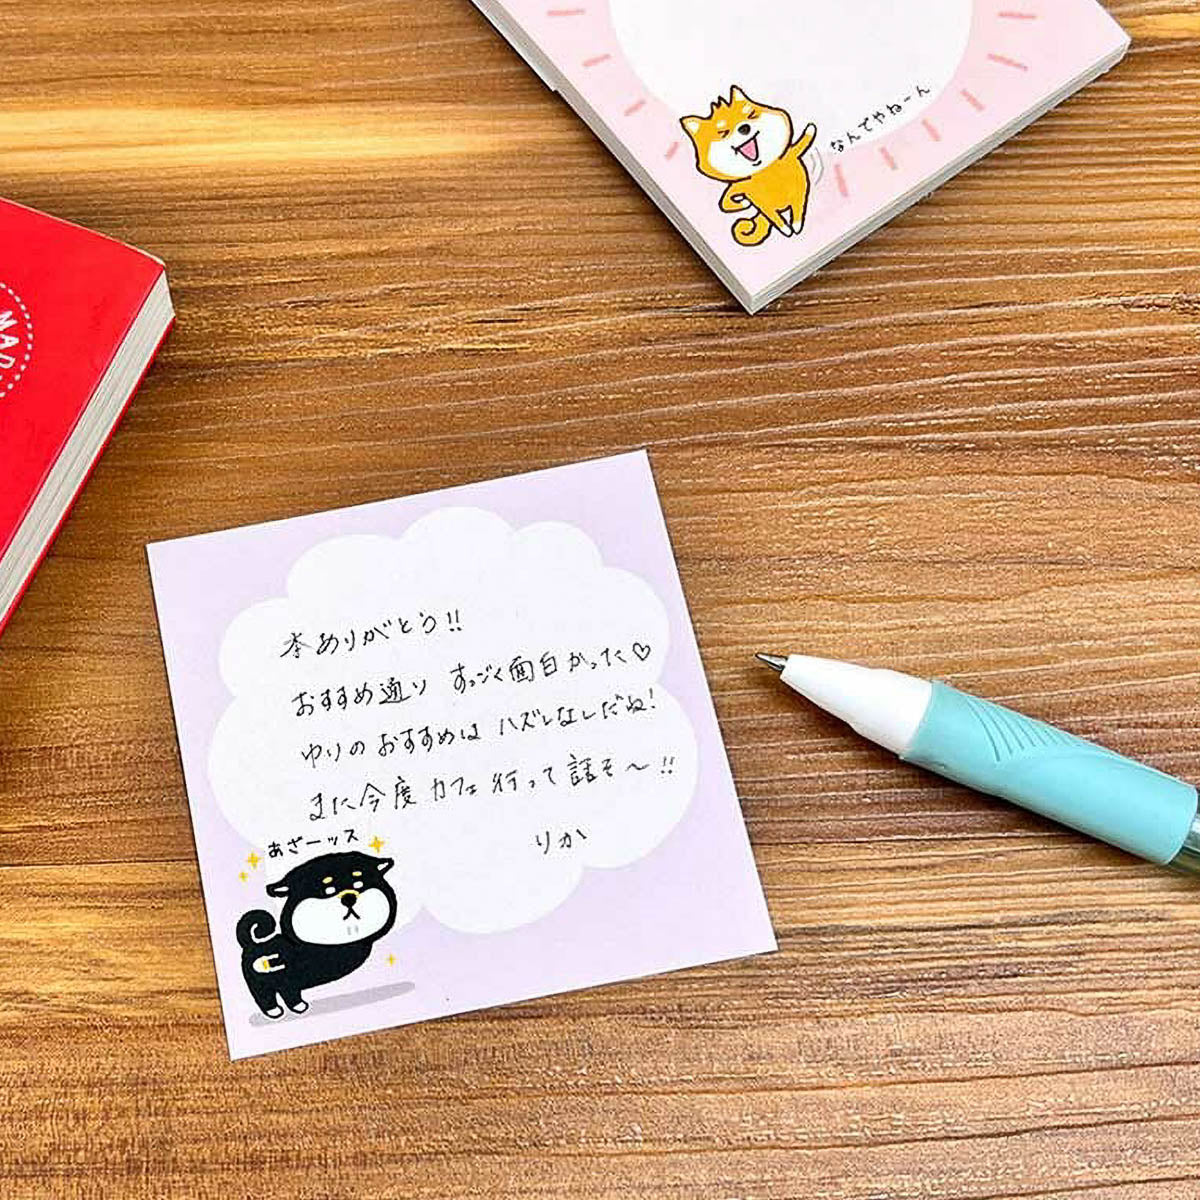 なんでやねーん
MAD
本ありがとう!!
おすすめ通り すっごく面白かった♡
ゆりのおすすめは ハズレなしだね!
また今度カフェ行って話そ〜!!
りか
あざーッス